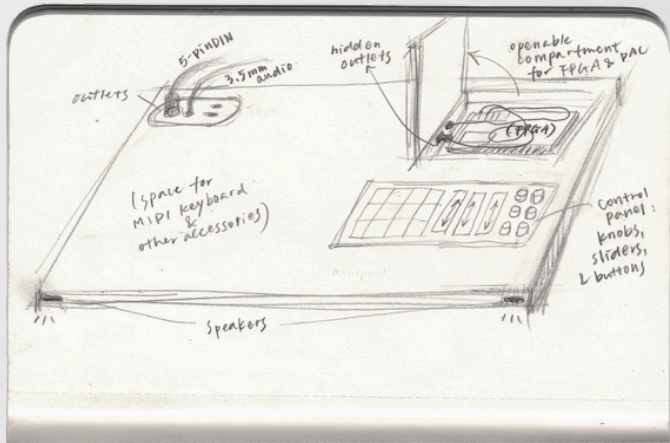 5-pin DIN
3.5mm
audio
outlets
hidden
outlets
openable
compartment
for FPGA & DAC
(FPGA)
(space for
MIDI keyboard
&
other accessories)
control
panel:
knobs,
sliders,
& buttons
speakers